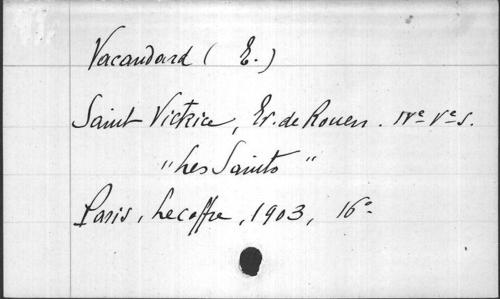 Vacandard (E.)
Saint Victrice, Ev. de Rouen. IVe Ve s.
"Les Saints"
Paris, Lecoffre, 1903, 16°.